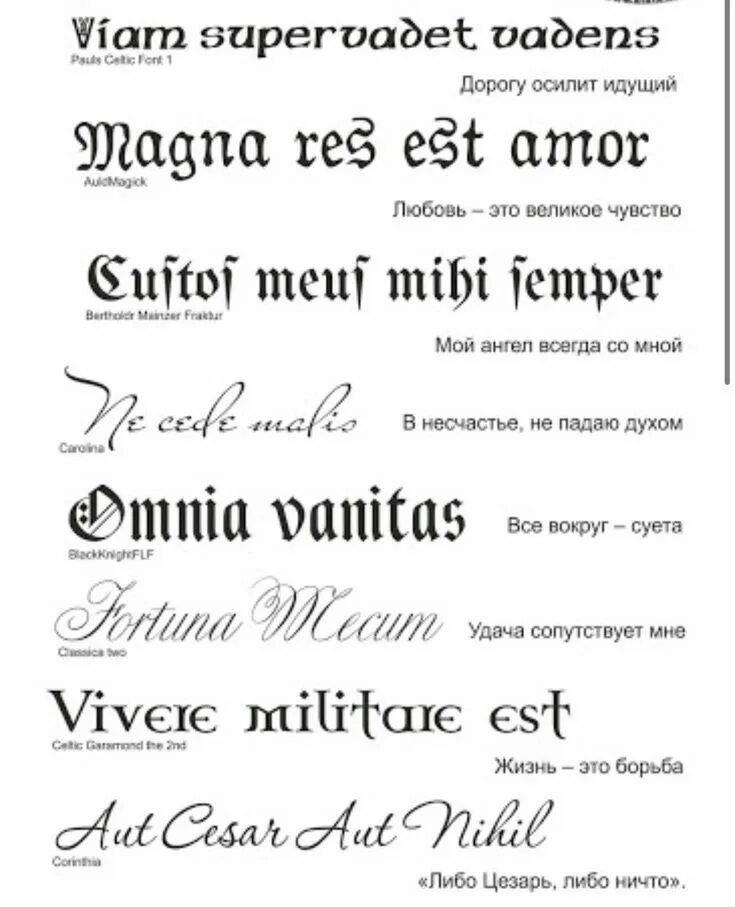 Viam supervadet vadens
Pauls Celtic Font 1
Дорогу осилит идущий
Magna res est amor
AuldMagick
Любовь – это великое чувство
Cuſtoſ meuſ mihi ſemper
Bertholdr Mainzer Fraktur
Мой ангел всегда со мной
Ne cede malis
Carolina
В несчастье, не падаю духом
Omnia vanitas
BlackKnightFLF
Все вокруг – суета
Fortuna Mecum
Classica two
Удача сопутствует мне
Vivere militare est
Celtic Garamond the 2nd
Жизнь – это борьба
Aut Cesar Aut Nihil
Corinthia
«Либо Цезарь, либо ничто».